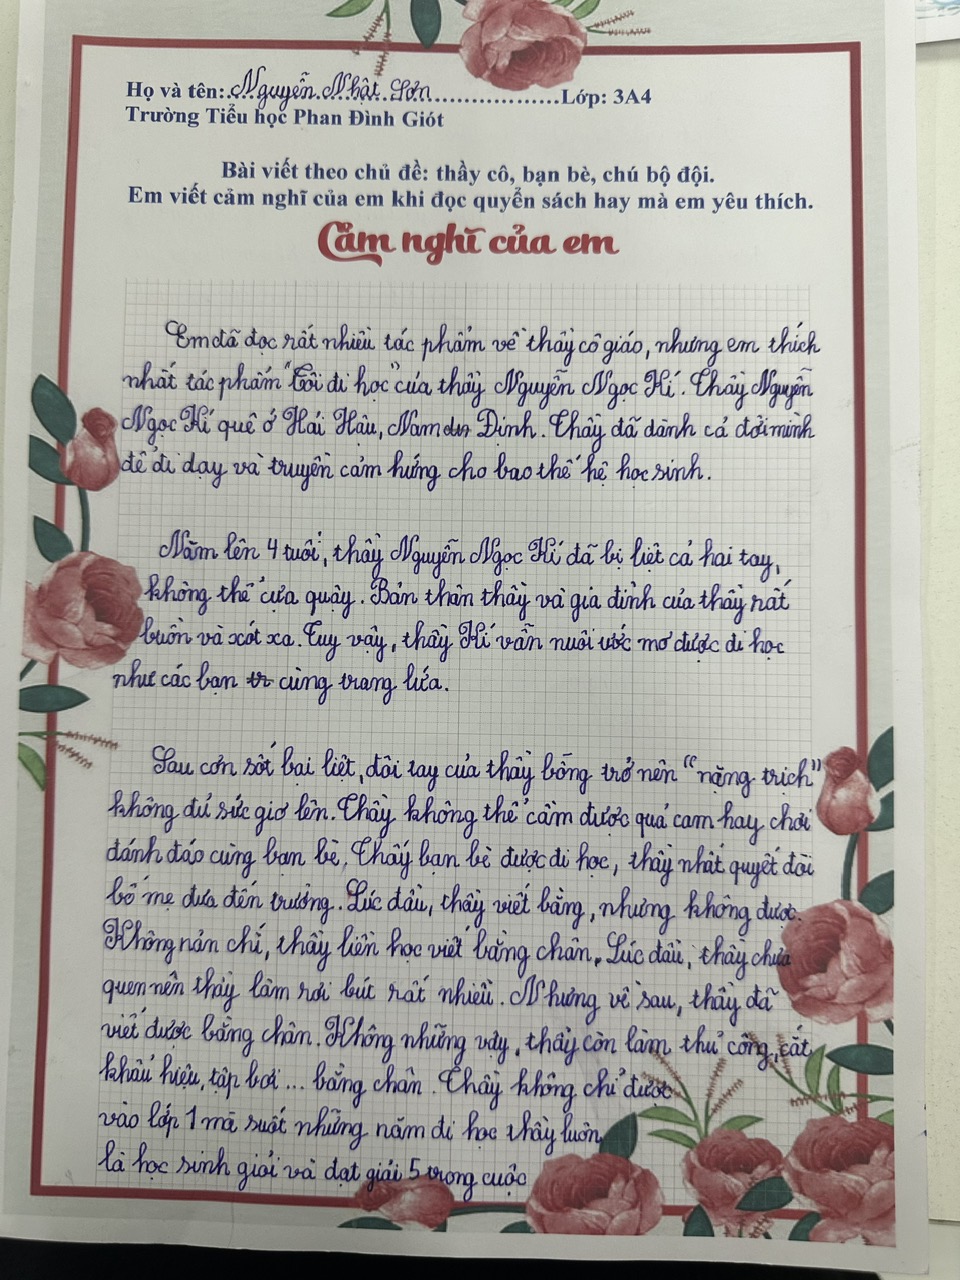 Họ và tên:..Nguyễn Nhật Sơn..................Lớp: 3A4
Trường Tiểu học Phan Đình Giót
Bài viết theo chủ đề: thầy cô, bạn bè, chú bộ đội.
Em viết cảm nghĩ của em khi đọc quyển sách hay mà em yêu thích.
Cảm nghĩ của em
Em đã đọc rất nhiều tác phẩm về thầy cô giáo, nhưng em thích
nhất tác phẩm "Tôi đi học" của thầy Nguyễn Ngọc Kí. Thầy Nguyễn
Ngọc Kí quê ở Hải Hậu, Nam Định. Thầy đã dành cả đời mình
để đi dạy và truyền cảm hứng cho bao thế hệ học sinh.
Năm lên 4 tuổi, thầy Nguyễn Ngọc Kí đã bị liệt cả hai tay,
không thể cựa quậy. Bản thân thầy và gia đình của thầy rất
buồn và xót xa. Tuy vậy, thầy Kí vẫn nuôi ước mơ được đi học
như các bạn cùng trang lứa.
Sau cơn sốt bại liệt, đôi tay của thầy bỗng trở nên "nặng trịch"
không đủ sức giơ lên. Thầy không thể cầm được quả cam hay chơi
đánh đáo cùng bạn bè. Thấy bạn bè được đi học, thầy nhất quyết đòi
bố mẹ đưa đến trường. Lúc đầu, thầy viết bằng, nhưng không được.
Không nản chí, thầy liền học viết bằng chân. Lúc đầu, thầy chưa
quen nên thầy làm rơi bút rất nhiều. Nhưng về sau, thầy đã
viết được bằng chân. Không những vậy, thầy còn làm thủ công, cắt
khẩu hiệu, tập bơi ... bằng chân. Thầy không chỉ được
vào lớp 1 mà suốt những năm đi học thầy luôn
là học sinh giỏi và đạt giải 5 trong cuộc